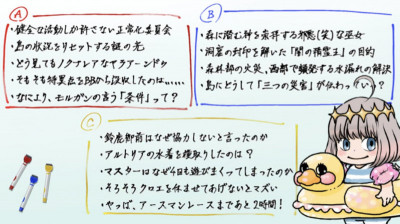 A
・健全な活動しか許さない正常化委員会
・島の状況をリセットする謎の光
・どう見てもノクナレアなサラアーンドゥ
・そもそも特異点をBBから没収したのは……
・なにより、モルガンの言う「条件」って?
B
・森に潜む神を崇拝する邪悪(笑)な巫女
・洞窟の封印を解いた「闇の積雲王」の目的
・森林部の火災、西部で頻発する水漏れの解決
・島にどうして「三つの災害」が伝わって(い)?
C
・鈴鹿御前はなぜ協力しないと言ったのか
・アルトリアの水着を横取りしたのは?
・マスターはなぜ4日も遊びまくってしまったのか
・そろそろクロエを休ませてあげないとマズい
・やっば、アースマンレースまであと2時間!